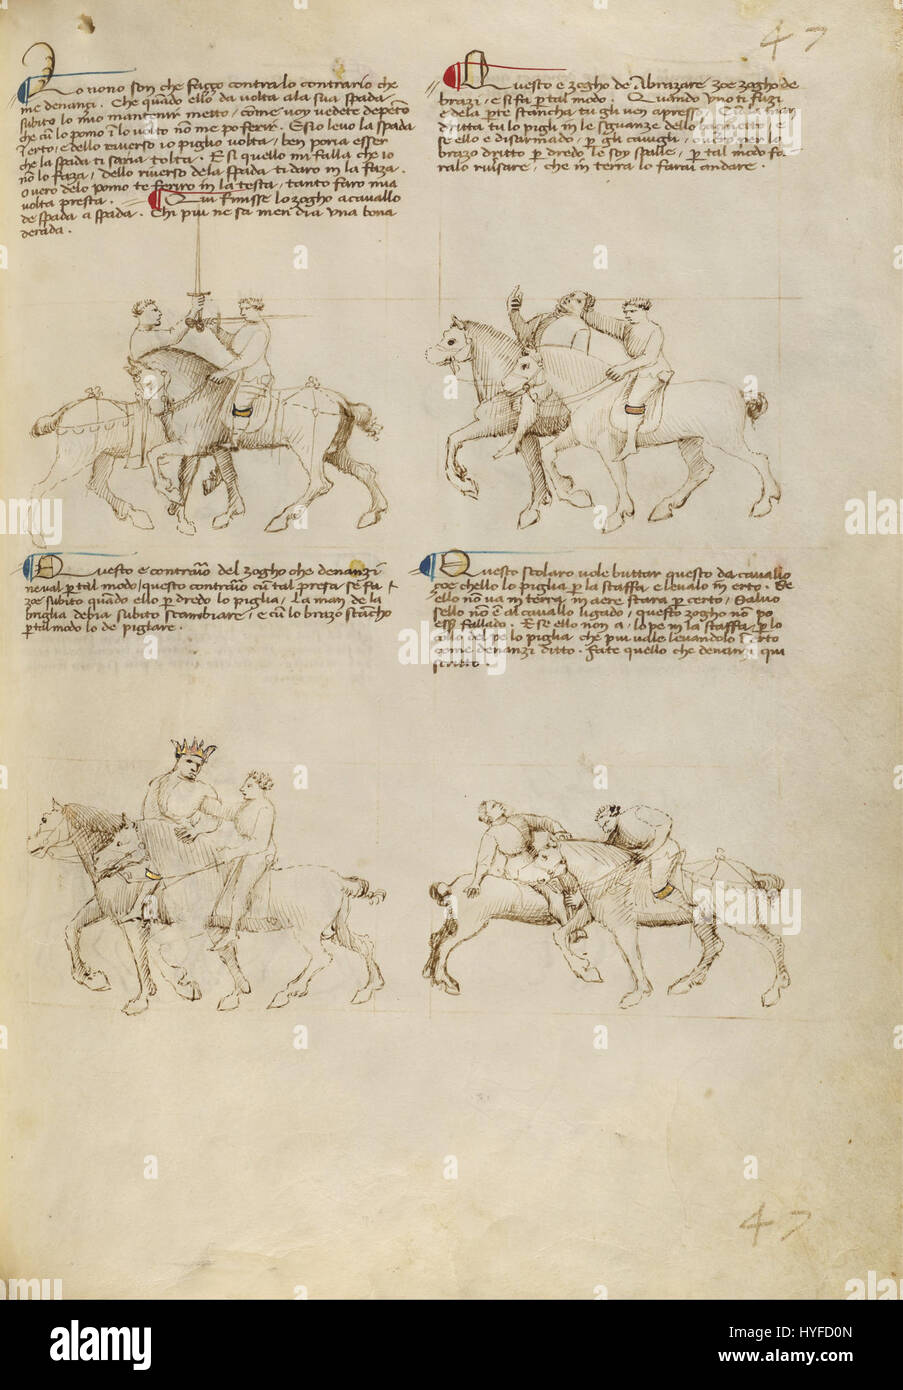 47
Lo nono son che faço contra lo contrario che
me denançi. Che quando ello da volta ala sua spada
subito lo mio mantenir metto, come voy vedete depento
che cum lo pomo in lo volto non me po ferir. E s'io levo la spada
in erto, e dello riverso io piglio volta, ben poria esser
che la spada ti saria tolta. E si quello mi falla che io
non lo faza, dello riverso dela spada ti daro in la faza.
O vero delo pomo te feriro in la testa, tanto faro mia
volta presta. Qui finisse lo zogho a cavallo
de spada a spada. Chi piu ne sa men dia una bona
derada.
Questo e zogho de Abrazare zoe zogho de
brazi, e si fa per tal modo. Quando uno ti fuzi
e dela parte stancha tu gli ven apresso. Cum la man
dritta tu lo pigli in le sguanze dello bacinetto, e
se ello e disarmado, per gli cavigli, o vero per lo
brazo dritto per dredo le soy spalle, per tal modo fa-
ralo rivisare, che in terra lo farai andare.
Questo e contrario del zogho che denanzi
ne val per tal modo, questo contrario cum tal presa se fa,
zoe subito quando ello per dredo lo piglia, la man de la
briglia debia subito scambiare, e cum lo brazo stancho
per tal modo lo de pigliare.
Questo scolaro vole buttar questo da cavallo
çoe ch'ello lo piglia per la staffa e levalo in erto. Se
ello non va in terra, in aere stara per certo, Salvo
s'ello non è al cavallo ligado, questo zogho non po
esser fallado. E se ello non a, lo pe in la staffa, per lo
collo del pe lo piglia che piu vale levandolo in erto
come denanzi ditto. Fate quello che denanzi qui
scritto.
47
alamy
Image ID: HYFD0N
www.alamy.com